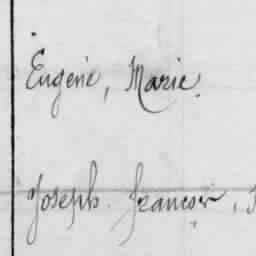 Eugène, Marie.
Joseph. françois,